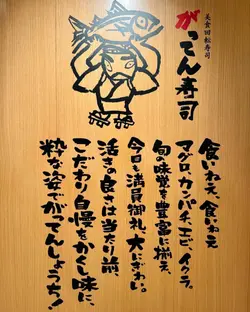 美食回転寿司
がってん寿司
食いねえ、食いねえ
マグロ、カンパチ、エビ、イクラ。
旬の味覚を豊富に揃え、
今日も満員御礼、大にぎわい。
活きの良さは当たり前
こだわり自慢をかくし味に、
粋な姿でがってんしょうち!